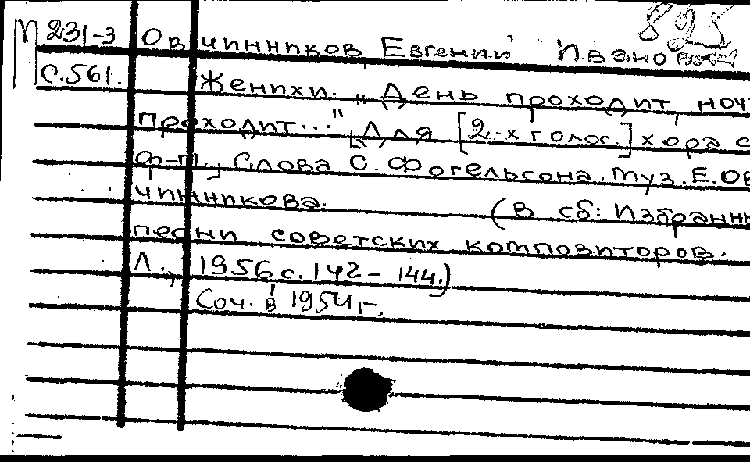 М 231-3 Овчинников Евгений Иванович 825
С.561. Женихи. „День проходит, ноч
проходит..." [Для [2-х голос.] хора с
ф-п.] Слова С. Фогельсона. Муз. Е. Ов
чинникова. (В сб: Избранн
песни советских композиторов.
Л., 1956 с. 142 - 144.)
Соч. в 1954 г.